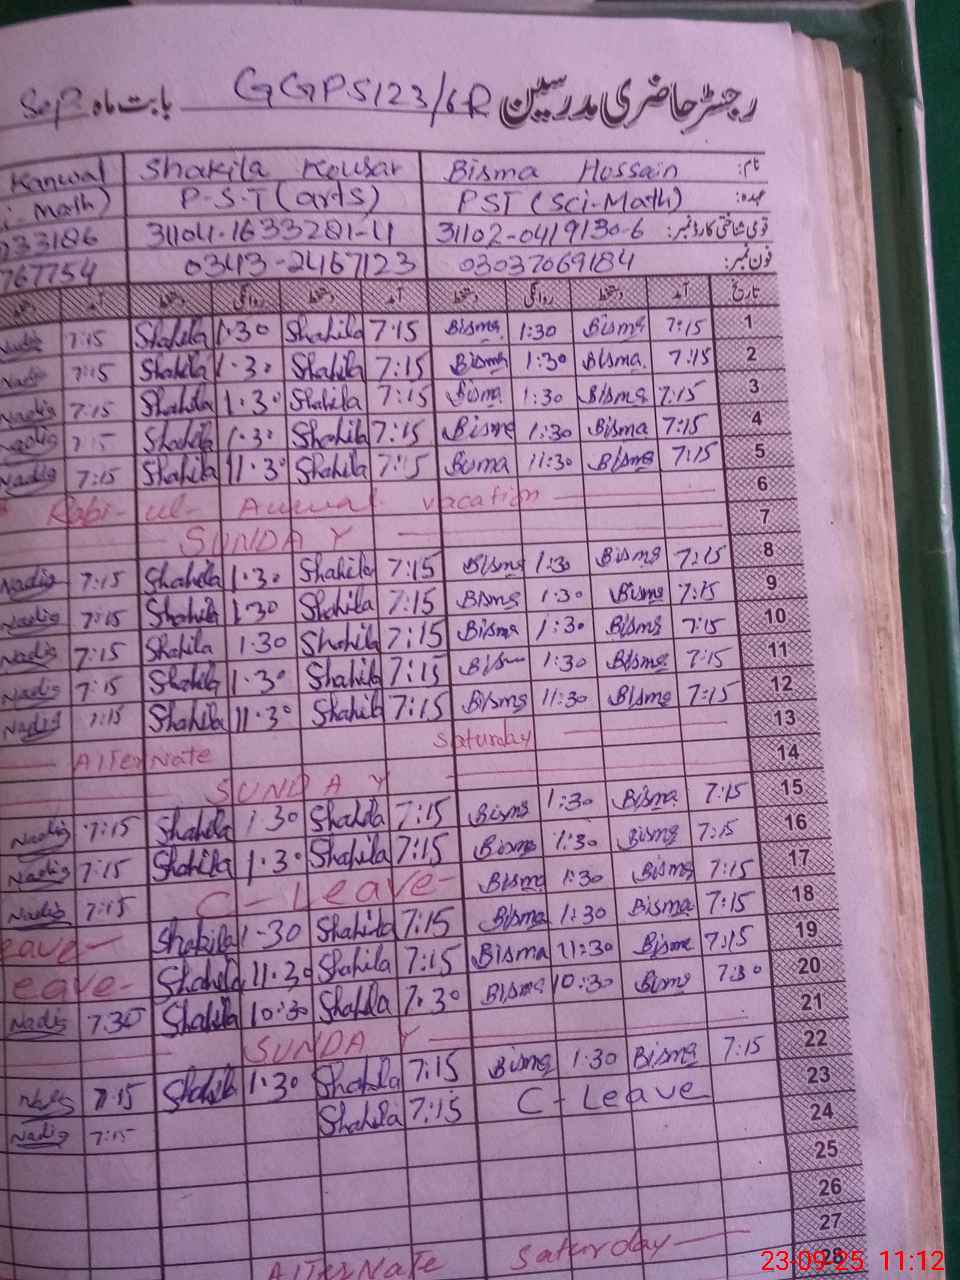 رجسٹر حاضری مدرسین GGPS123/6R بابت ماہ Sep
Kanwal Shakila Kousar Bisma Hossain نام:
Math) P-S-T (arts) PST (Sci-Math) عہدہ:
233186 31104-1633281-4 31102-0419130-6 قومی شناختی کارڈ نمبر:
767754 0343-2467123 03037069184 فون نمبر:
دستخط آمد دستخط روانگی دستخط آمد دستخط روانگی دستخط آمد تاریخ
Nadia 7:15 Shahila 1.30 Shahila 7:15 Bisma 1:30 Bisma 7:15 1
Nadia 7:15 Shahila 1.30 Shahila 7:15 Bisma 1:30 Bisma 7:15 2
Nadia 7:15 Shahila 1.30 Shahila 7:15 Bisma 1:30 Bisma 7:15 3
Nadia 7:15 Shahila 1.30 Shahila 7:15 Bisma 1:30 Bisma 7:15 4
Nadia 7:15 Shahila 11.30 Shahila 7:15 Bisma 11:30 Bisma 7:15 5
Rabi-ul-Awwal vacation 6
SUNDAY 7
Nadia 7:15 Shahila 1.30 Shahila 7:15 Bisma 1:30 Bisma 7:15 8
Nadia 7:15 Shahila 1.30 Shahila 7:15 Bisma 1:30 Bisma 7:15 9
Nadia 7:15 Shahila 1.30 Shahila 7:15 Bisma 1:30 Bisma 7:15 10
Nadia 7:15 Shahila 1.30 Shahila 7:15 Bism 1:30 Bisma 7:15 11
Nadia 7:15 Shahila 11.30 Shahila 7:15 Bisma 11:30 Bisma 7:15 12
Alternate Saturday 13
SUNDAY 14
Nadia 7:15 Shahila 1.30 Shahila 7:15 Bisma 1:30 Bisma 7:15 15
Nadia 7:15 Shahila 1.30 Shahila 7:15 Bisma 1:30 Bisma 7:15 16
Nadia 7:15 C-Leave Bisma 1:30 Bisma 7:15 17
eave Shakila 1.30 Shahila 7:15 Bisma 1:30 Bisma 7:15 18
eave Shahila 11.30 Shahila 7:15 Bisma 11:30 Bisma 7:15 19
Nadia 7.30 Shahila 10.30 Shahila 7.30 Bisma 10:30 Bisma 7:30 20
SUNDAY 21
Nadia 7:15 Shahila 1.30 Shahila 7:15 Bisma 1:30 Bisma 7:15 22
Nadia 7:15 Shahila 7:15 C-Leave 23
24
25
26
Alternate Saturday 27
28
23-09-25 11:12